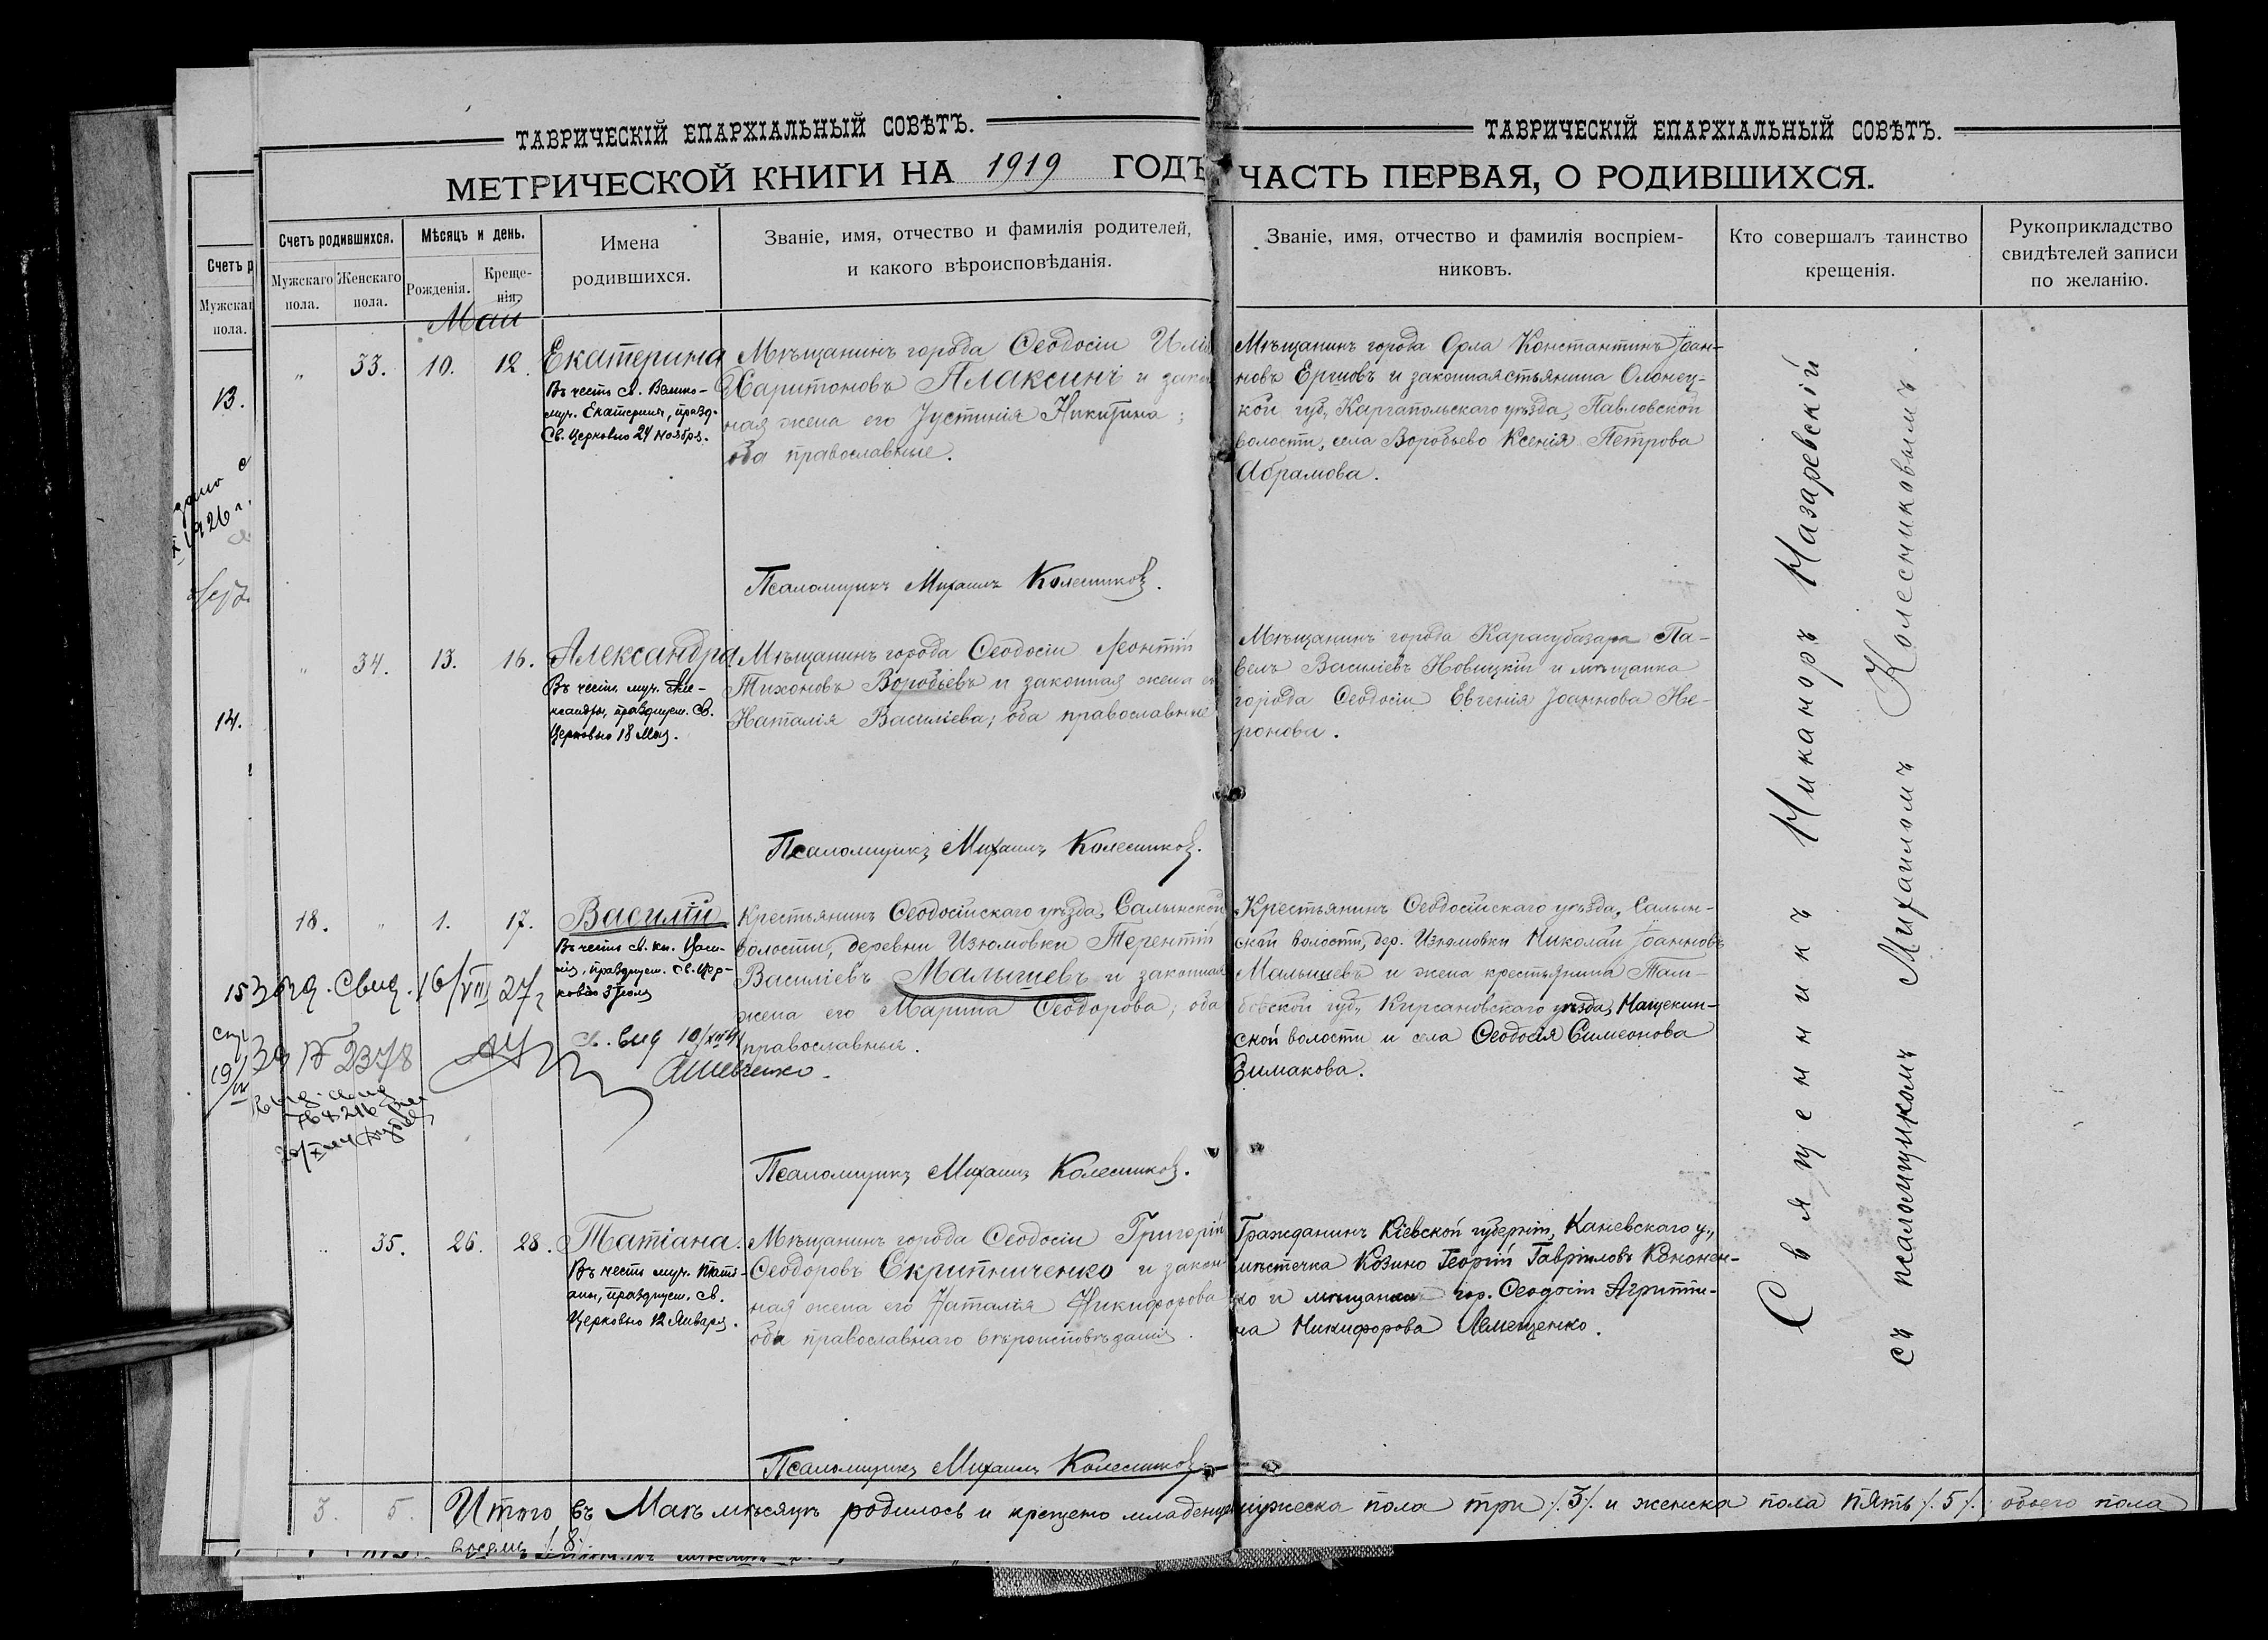 ТАВРИЧЕСКІЙ ЕПАРХІАЛЬНЫЙ СОВѢТЪ.
МЕТРИЧЕСКОЙ КНИГИ НА 1919 ГОДЪ
Счетъ родившихся.
Мужскаго пола.
Женскаго пола.
Мѣсяцъ и день.
Рожденія.
Креще-
нія.
Имена
родившихся.
Званіе, имя, отчество и фамилія родителей,
и какого вѣроисповѣданія.
ТАВРИЧЕСКІЙ ЕПАРХІАЛЬНЫЙ СОВѢТЪ.
ЧАСТЬ ПЕРВАЯ, О РОДИВШИХСЯ.
Званіе, имя, отчество и фамилія воспріем-
никовъ.
Кто совершалъ таинство
крещенія.
Рукоприкладство
свидѣтелей записи
по желанію.
Май
" 33. 10. 12.
Екатерина
Въ честь св. Велико-
муч. Екатерины, празд.
Св. Церковію 24 ноября.
Мѣщанинъ города Ѳеодосіи
Харитоновъ Плаксинъ и
ная жена его Іустинія Никитина;
оба православные.
Мѣщанинъ города Орла Константинъ Іоан-
новъ и
кой губ., Каргапольскаго уѣзда, Павловской
волости, села Воробьево Ксенія Петрова
Абрамова.
Псаломщикъ Михаилъ Колесниковъ.
" 34. 13. 16.
Александра
Въ честь муч. Але-
ксандры, празднуем. Св.
Церковію 18 Мая.
Мѣщанинъ города Ѳеодосіи Леонтій
Тихоновъ Воробьевъ и законная жена
Наталія Василіева; оба православные
Мѣщанинъ города Карасубазара Па-
велъ Василіевъ Новицкій и мѣщанка
города Ѳеодосіи Евгенія Іоаннова Не-
ронова.
Псаломщикъ Михаилъ Колесниковъ.
18. " 1. 17.
Василій
Въ честь св. кн. Васи-
лія, празднуем. св. Цер-
ковію 3 Іюля
Крестьянинъ Ѳеодосійскаго уѣзда, Салынской
волости, деревни Изюмовки Терентій
Василіевъ Малышевъ и законная
жена его Марина Ѳеодорова; оба
православные.
Крестьянинъ Ѳеодосійскаго уѣзда, Салын-
ской волости, дер. Изюмовки Николай Іоанновъ
Малышевъ и жена крестьянина Там-
бовской губ., Кирсановскаго уѣзда,
ской волости и села Ѳеодосія Симеонова
Симакова.
Свид. 16/VIII 27 г
№ 2378
Псаломщикъ Михаилъ Колесниковъ.
" 35. 26. 28.
Татіана.
Въ честь муч. Тати-
аны, празднуем. св.
Церковію 12 Января.
Мѣщанинъ города Ѳеодосіи Григорій
Ѳеодоровъ Скрипниченко и закон-
ная жена его Наталія Никифорова
оба православнаго вѣроисповѣданія.
Гражданинъ Кіевской губерніи, Каневскаго у.,
мѣстечка Козино Георгій Гавріиловъ Кононен-
ко и мѣщанка гор. Ѳеодосіи Агриппи-
на Никифорова Лемещенко.
Псаломщикъ Михаилъ Колесниковъ
Священникъ Никаноръ Назаревскій
съ псаломщикомъ Михаиломъ Колесниковымъ.
3. 5. Итого въ Маѣ мѣсяцѣ родилось и крещено младенцевъ мужеска пола три /.3/. и женска пола пять /.5/. обоего пола
восемь /.8/.
Счетъ р
Мужскаг
пола.
13.
1926 г.
14.